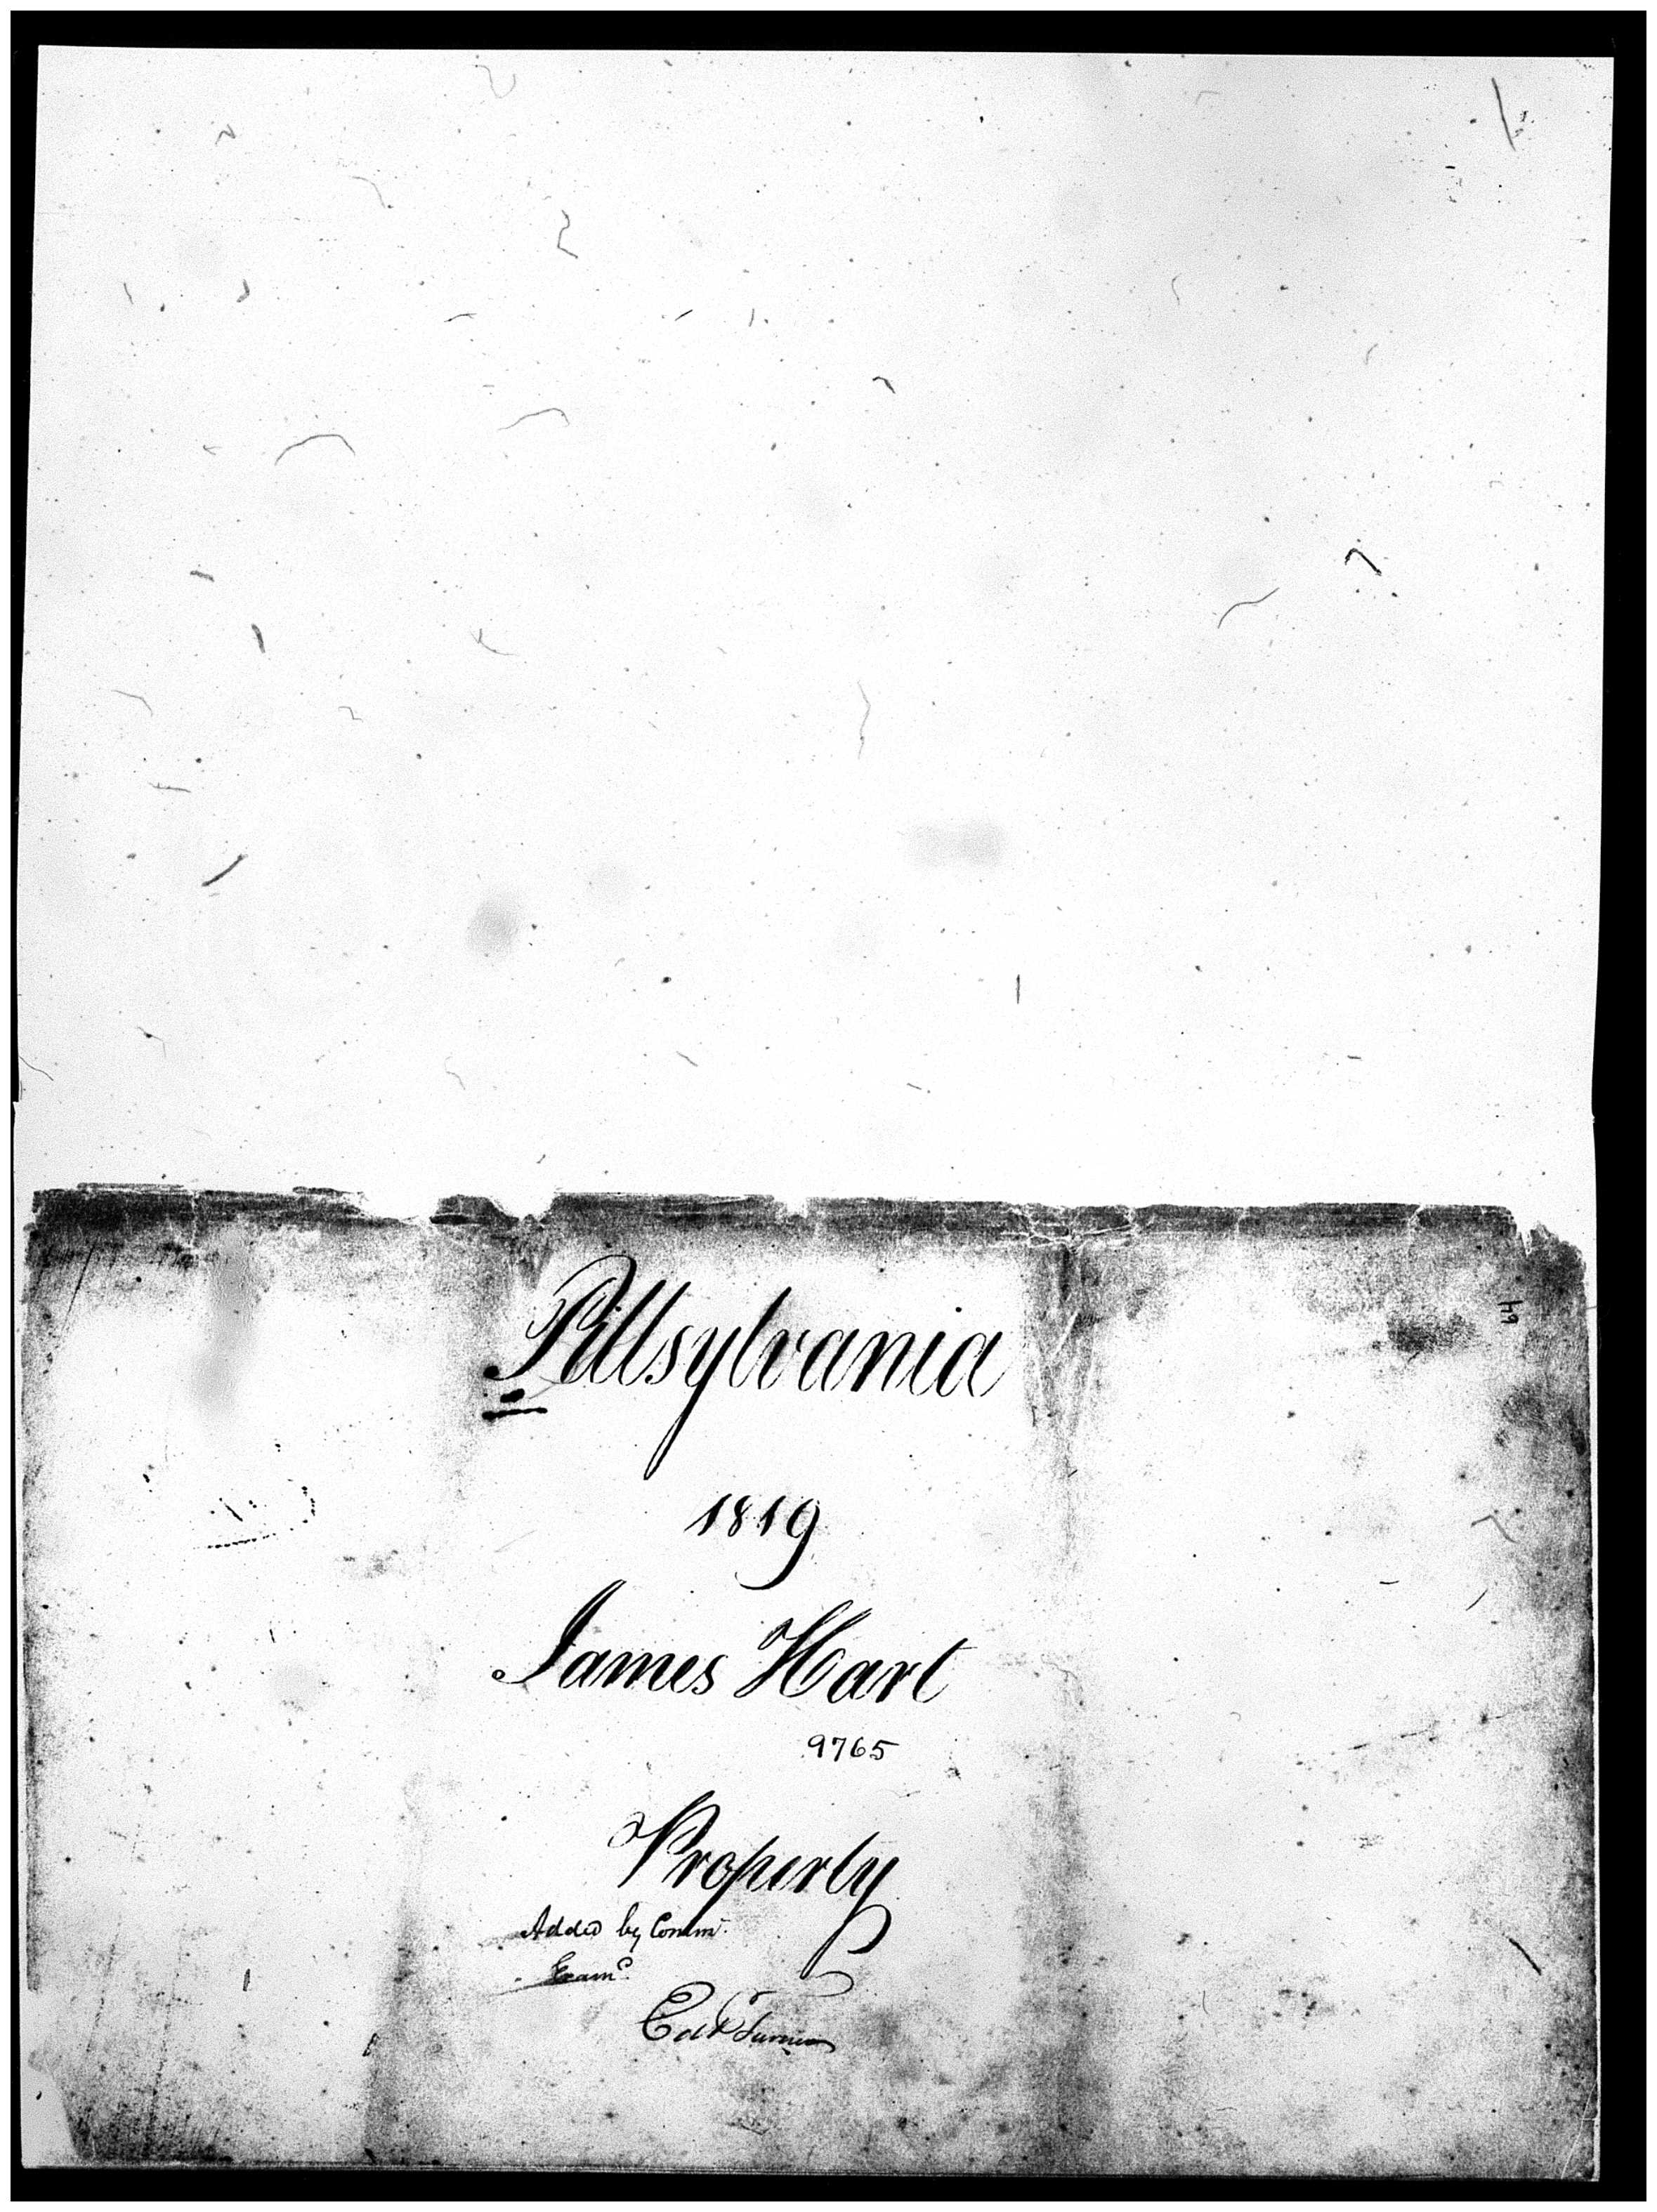 Pittsylvania
1819
James Hart
9765
Property
Added by Comm.
Exam.d
64